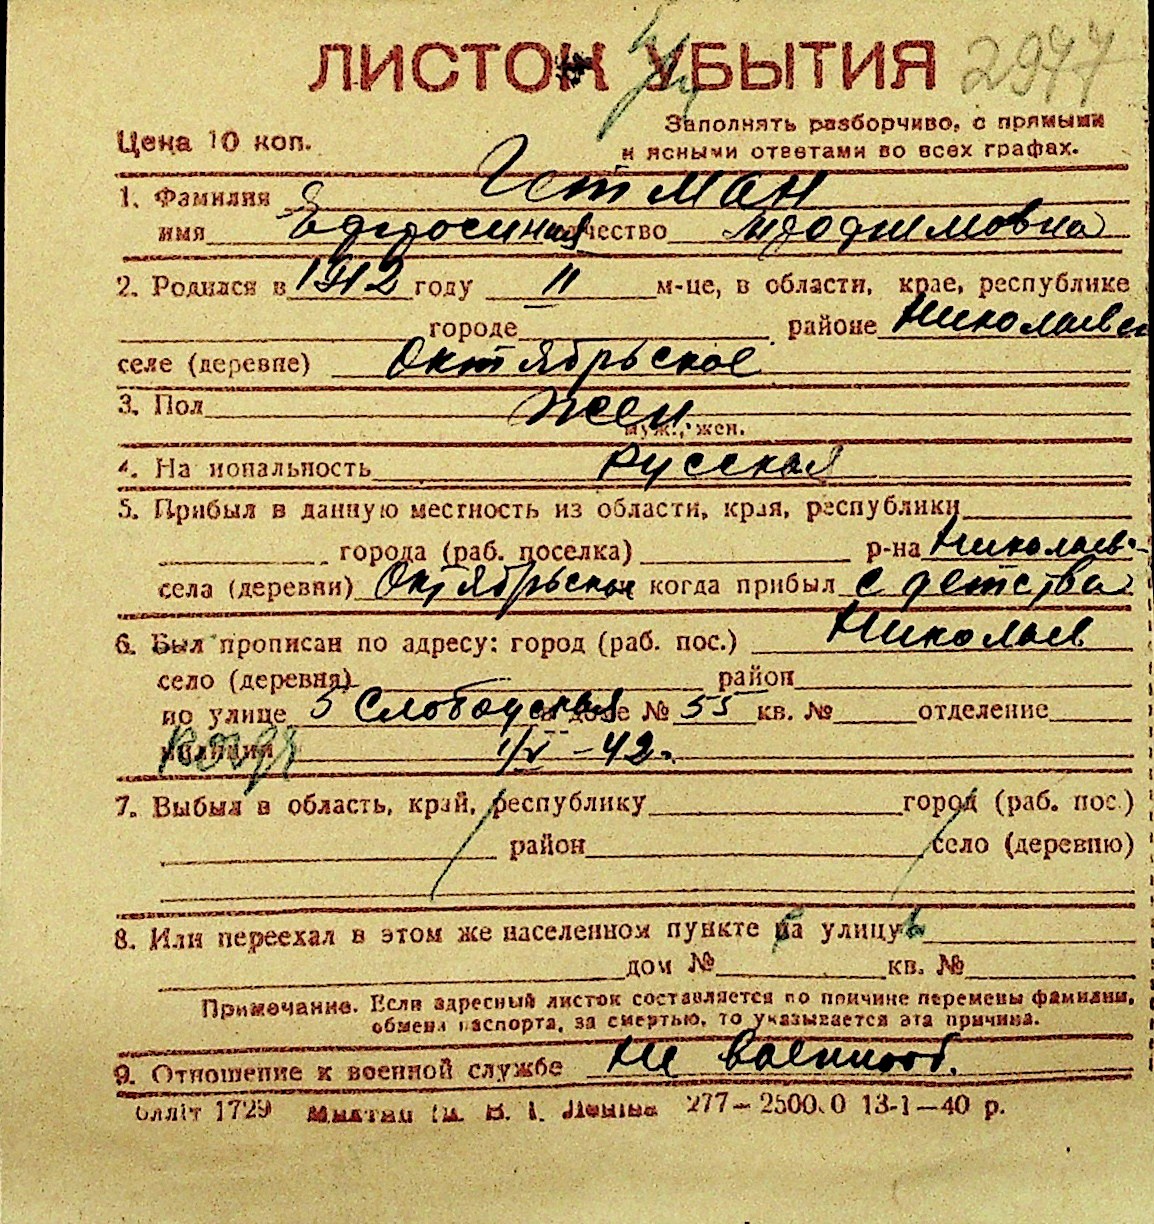 ЛИСТОК УБЫТИЯ 2977
Заполнять разборчиво, с прямыми
Цена 10 коп.
и ясными ответами во всех графах.
1. Фамилия Гетман
имя Ефросиния отчество Трофимовна
2. Родился в 1912 году 11 м-це, в области, крае, республике
городе районе Николаевск
селе (деревне) Октябрьское
3. Пол Жен
муж., жен.
4. Национальность Русская
5. Прибыл в данную местность из области, края, республики
города (раб. поселка) р-на Николаевс-
села (деревни) Октябрьское когда прибыл с детства
6. Был прописан по адресу: город (раб. пос.) Николаев
село (деревня) район
по улице 5 Слободская в доме № 55 кв. № отделение
милиции 1/V-42.
7. Выбыл в область, край, республику город (раб. пос.)
район село (деревню)
8. Или переехал в этом же населенном пункте на улицу
дом № кв. №
Примечание. Если адресный листок составляется по причине перемены фамилии,
обмена паспорта, за смертью, то указывается эта причина.
9. Отношение к военной службе не военнооб.
1729 277—2500.0 13-1—40 р.